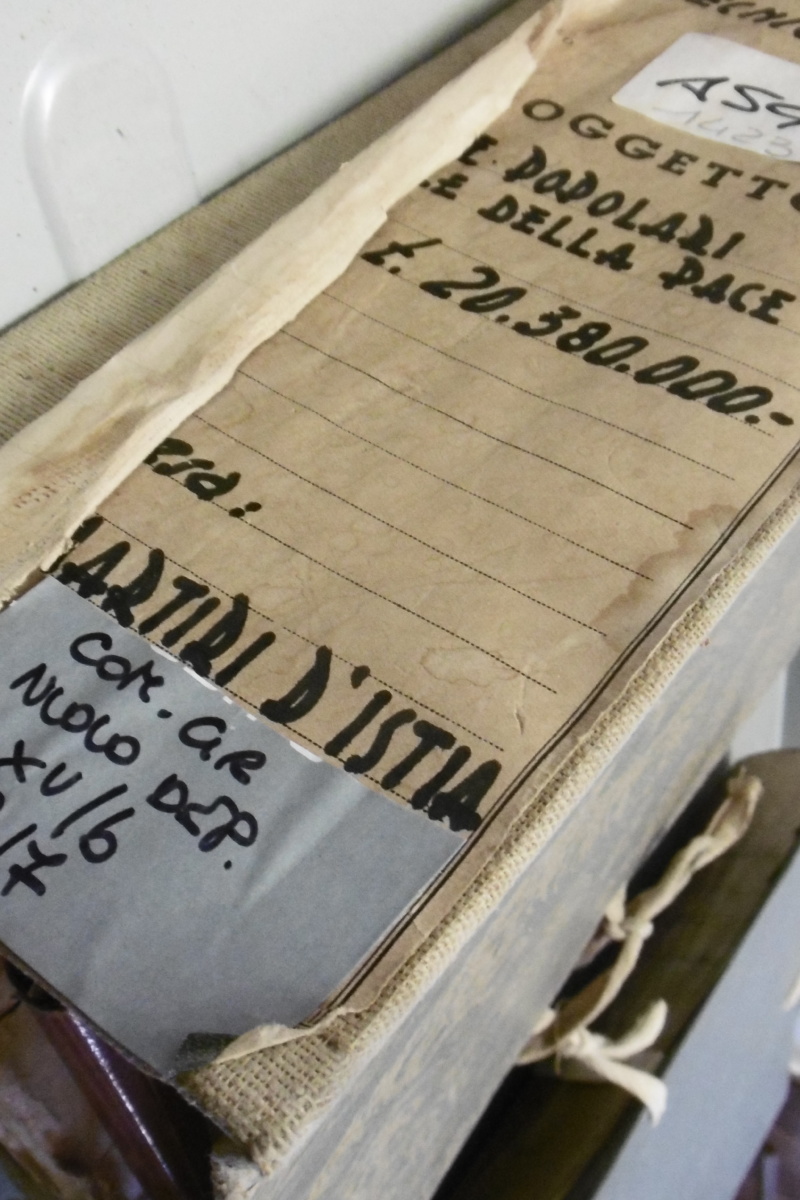 ASG
1423
OGGETTO
E DODOLARI
E DELLA PACE
£. 20.380.000.-
MARTIRI D'ISTIA
COM. GR
NUOVO DEP.
XV/6
/7